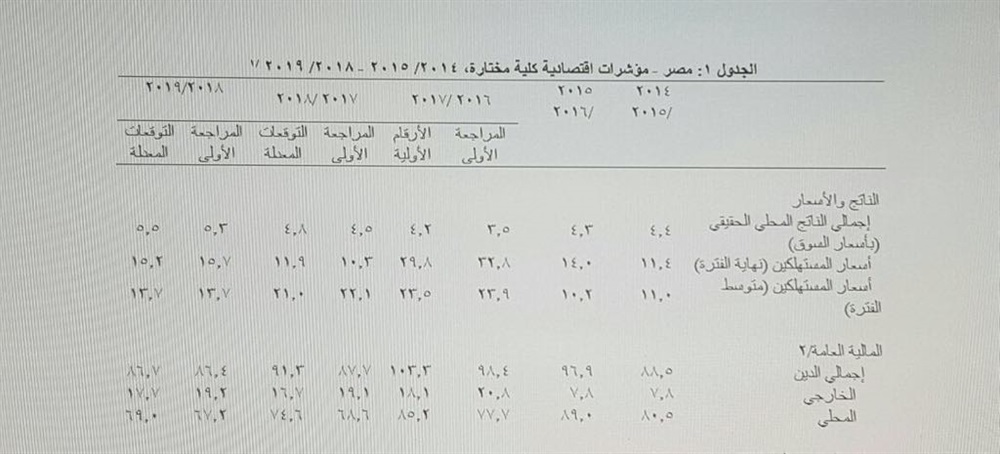 الجدول ١: مصر - مؤشرات اقتصادية كلية مختارة، ٢٠١٥/٢٠١٤ - ٢٠١٩/٢٠١٨ ١/
٢٠١٤ ٢٠١٥ ٢٠١٧/٢٠١٦ ٢٠١٨/٢٠١٧ ٢٠١٩/٢٠١٨
/٢٠١٥ /٢٠١٦
المراجعة الأرقام المراجعة التوقعات المراجعة التوقعات
الأولى الأولية الأولى المعدلة الأولى المعدلة
الناتج والأسعار
إجمالي الناتج المحلي الحقيقي ٤,٤ ٤,٣ ٣,٥ ٤,٢ ٤,٥ ٤,٨ ٥,٣ ٥,٥
(بأسعار السوق)
أسعار المستهلكين (نهاية الفترة) ١١,٤ ١٤,٠ ٣٢,٨ ٢٩,٨ ١٠,٣ ١١,٩ ١٥,٧ ١٥,٢
أسعار المستهلكين (متوسط ١١,٠ ١٠,٢ ٢٣,٩ ٢٣,٥ ٢٢,١ ٢١,٠ ١٣,٧ ١٣,٧
الفترة)
المالية العامة/٢
إجمالي الدين ٨٨,٥ ٩٦,٩ ٩٨,٤ ١٠٣,٣ ٨٧,٧ ٩١,٣ ٨٦,٤ ٨٦,٧
الخارجي ٧,٨ ٧,٨ ٢٠,٨ ١٨,١ ١٩,١ ١٦,٧ ١٩,٢ ١٧,٧
المحلي ٨٠,٥ ٨٩,٠ ٧٧,٧ ٨٥,٢ ٦٨,٦ ٧٤,٦ ٦٧,٢ ٦٩,٠